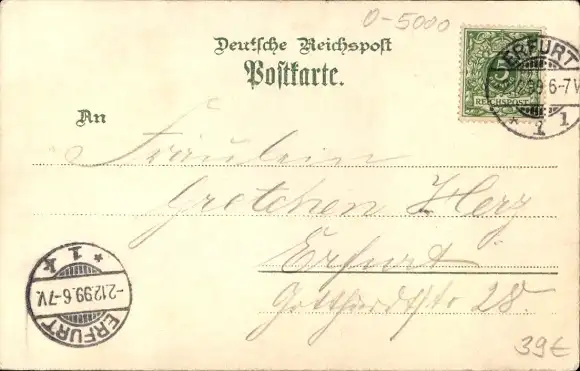 0-5000
Deutsche Reichspost
Postkarte.
5
REICHSPOST
ERFURT
2.12.99.6-7V.
* 1 1
An
Fräulein
Gretchen Herz
Erfurt
Gotthardtstr 28.
* 1 k
-2.12.99.6-7V.
ERFURT
39€